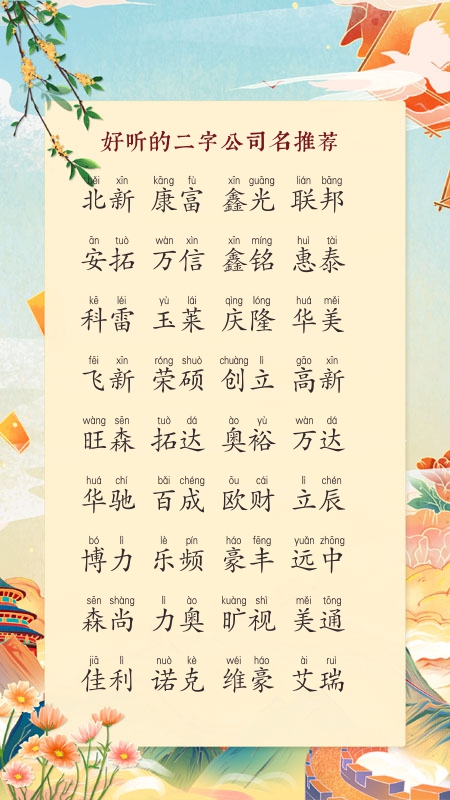 好听的二字公司名推荐
běi xīn kāng fù xīn guāng lián bāng
北新 康富 鑫光 联邦
ān tuò wàn xìn xīn míng huì tài
安拓 万信 鑫铭 惠泰
kē léi yù lái qìng lóng huá měi
科雷 玉莱 庆隆 华美
fēi xīn róng shuò chuàng lì gāo xīn
飞新 荣硕 创立 高新
wàng sēn tuò dá ào yù wàn dá
旺森 拓达 奥裕 万达
huá chí bǎi chéng ōu cái lì chén
华驰 百成 欧财 立辰
bó lì lè pín háo fēng yuǎn zhōng
博力 乐频 豪丰 远中
sēn shàng lì ào kuàng shì měi tōng
森尚 力奥 旷视 美通
jiā lì nuò kè wéi háo ài ruì
佳利 诺克 维豪 艾瑞